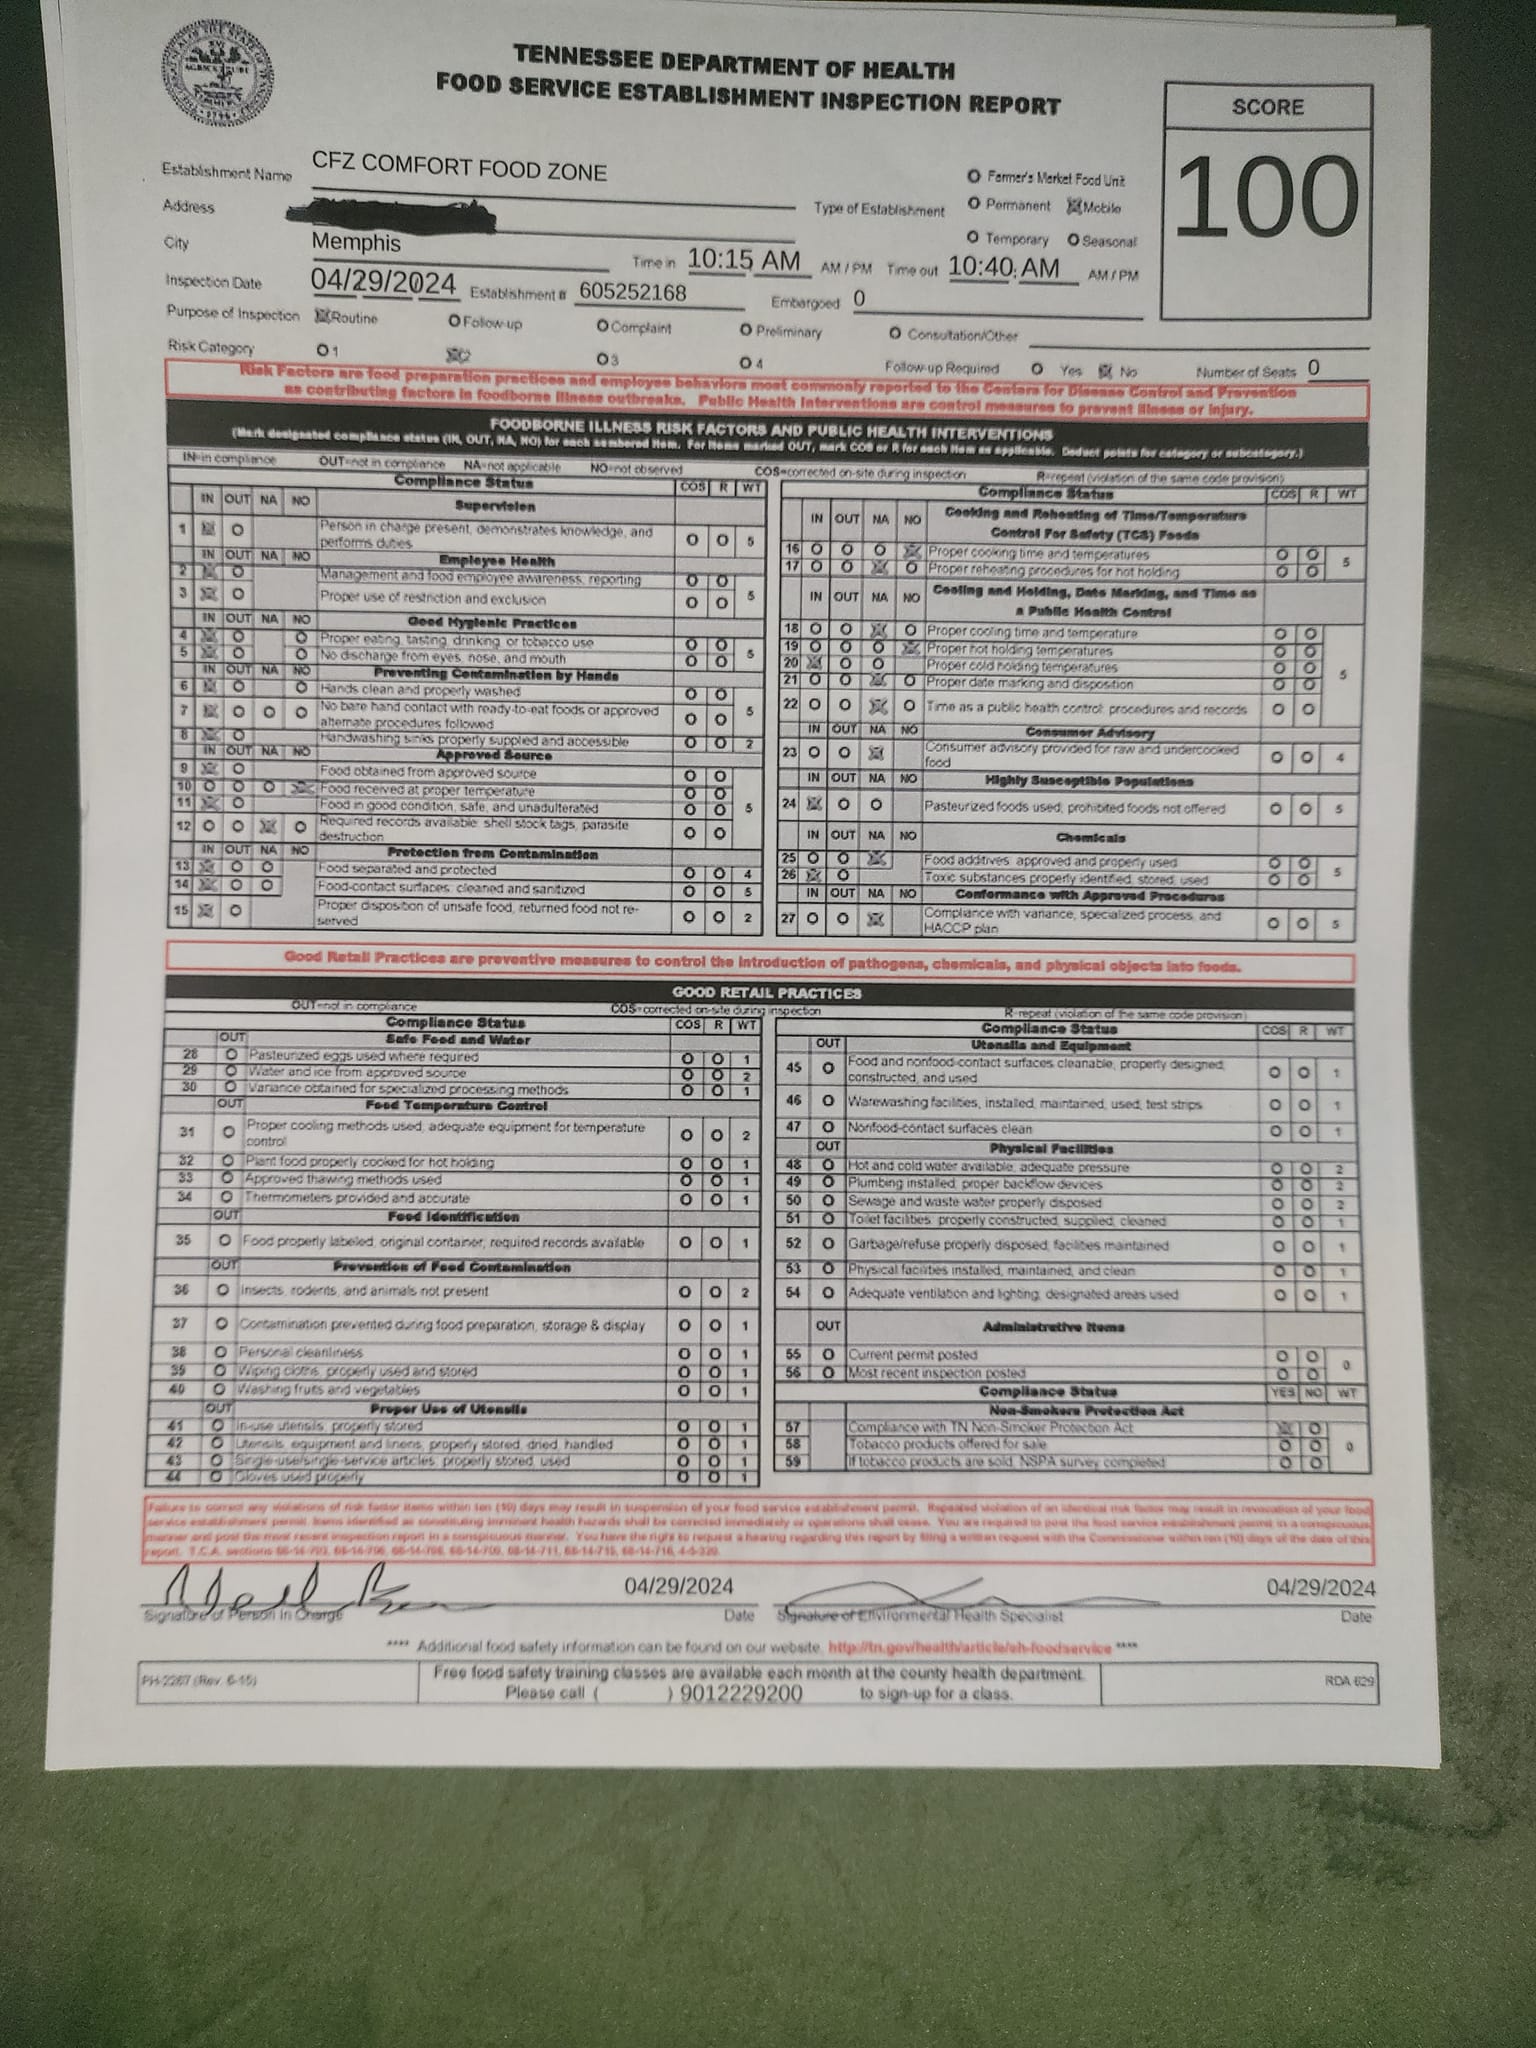 TENNESSEE DEPARTMENT OF HEALTH
FOOD SERVICE ESTABLISHMENT INSPECTION REPORT
SCORE
100
Establishment Name CFZ COMFORT FOOD ZONE
Address
City Memphis
Type of Establishment
Farmer's Market Food Unit
Permanent Mobile
Temporary Seasonal
Time in 10:15 AM AM / PM Time out 10:40 AM AM / PM
Inspection Date 04/29/2024 Establishment # 605252168 Embargoed 0
Purpose of Inspection Routine Follow-up Complaint Preliminary Consultation/Other
Risk Category 1 2 3 4 Follow-up Required Yes No Number of Seats 0
Risk Factors are food preparation practices and employee behaviors most commonly reported to the Centers for Disease Control and Prevention
as contributing factors in foodborne illness outbreaks. Public Health Interventions are control measures to prevent illness or injury.
FOODBORNE ILLNESS RISK FACTORS AND PUBLIC HEALTH INTERVENTIONS
(Mark designated compliance status (IN, OUT, NA, NO) for each numbered item. For items marked OUT, mark COS or R for each item as applicable. Deduct points for category or subcategory.)
IN=in compliance OUT=not in compliance NA=not applicable NO=not observed COS=corrected on-site during inspection R=repeat (violation of the same code provision)
Compliance Status COS R WT
IN OUT NA NO Supervision
1 Person in charge present, demonstrates knowledge, and
performs duties 5
IN OUT NA NO Employee Health
2 Management and food employee awareness, reporting
3 Proper use of restriction and exclusion 5
IN OUT NA NO Good Hygienic Practices
4 Proper eating, tasting, drinking, or tobacco use
5 No discharge from eyes, nose, and mouth 5
IN OUT NA NO Preventing Contamination by Hands
6 Hands clean and properly washed
7 No bare hand contact with ready-to-eat foods or approved
alternate procedures followed 5
8 Handwashing sinks properly supplied and accessible 2
IN OUT NA NO Approved Source
9 Food obtained from approved source
10 Food received at proper temperature
11 Food in good condition, safe, and unadulterated 5
12 Required records available: shell stock tags, parasite
destruction
IN OUT NA NO Protection from Contamination
13 Food separated and protected 4
14 Food-contact surfaces: cleaned and sanitized 5
15 Proper disposition of unsafe food, returned food not re-
served 2
Compliance Status COS R WT
IN OUT NA NO Cooking and Reheating of Time/Temperature
Control For Safety (TCS) Foods
16 Proper cooking time and temperatures 5
17 Proper reheating procedures for hot holding
IN OUT NA NO Cooling and Holding, Date Marking, and Time as
a Public Health Control
18 Proper cooling time and temperature
19 Proper hot holding temperatures
20 Proper cold holding temperatures
21 Proper date marking and disposition 5
22 Time as a public health control: procedures and records
IN OUT NA NO Consumer Advisory
23 Consumer advisory provided for raw and undercooked
food 4
IN OUT NA NO Highly Susceptible Populations
24 Pasteurized foods used; prohibited foods not offered 5
IN OUT NA NO Chemicals
25 Food additives: approved and properly used
26 Toxic substances properly identified, stored, used 5
IN OUT NA NO Conformance with Approved Procedures
27 Compliance with variance, specialized process, and
HACCP plan 5
Good Retail Practices are preventive measures to control the introduction of pathogens, chemicals, and physical objects into foods.
GOOD RETAIL PRACTICES
OUT=not in compliance COS=corrected on-site during inspection R-repeat (violation of the same code provision)
Compliance Status COS R WT
OUT Safe Food and Water
28 Pasteurized eggs used where required 1
29 Water and ice from approved source 2
30 Variance obtained for specialized processing methods 1
OUT Food Temperature Control
31 Proper cooling methods used; adequate equipment for temperature
control 2
32 Plant food properly cooked for hot holding 1
33 Approved thawing methods used 1
34 Thermometers provided and accurate 1
OUT Food Identification
35 Food properly labeled; original container; required records available 1
OUT Prevention of Food Contamination
36 Insects, rodents, and animals not present 2
37 Contamination prevented during food preparation, storage & display 1
38 Personal cleanliness 1
39 Wiping cloths; properly used and stored 1
40 Washing fruits and vegetables 1
OUT Proper Use of Utensils
41 In-use utensils; properly stored 1
42 Utensils, equipment and linens; properly stored, dried, handled 1
43 Single-use/single-service articles; properly stored, used 1
44 Gloves used properly 1
Compliance Status COS R WT
OUT Utensils and Equipment
45 Food and nonfood-contact surfaces cleanable, properly designed,
constructed, and used 1
46 Warewashing facilities, installed, maintained, used, test strips 1
47 Nonfood-contact surfaces clean 1
OUT Physical Facilities
48 Hot and cold water available; adequate pressure 2
49 Plumbing installed; proper backflow devices 2
50 Sewage and waste water properly disposed 2
51 Toilet facilities: properly constructed, supplied, cleaned 1
52 Garbage/refuse properly disposed; facilities maintained 1
53 Physical facilities installed, maintained, and clean 1
54 Adequate ventilation and lighting; designated areas used 1
OUT Administrative Items
55 Current permit posted
56 Most recent inspection posted 0
Compliance Status YES NO WT
Non-Smokers Protection Act
57 Compliance with TN Non-Smoker Protection Act
58 Tobacco products offered for sale 0
59 If tobacco products are sold, NSPA survey completed
Failure to correct any violations of risk factor items within ten (10) days may result in suspension of your food service establishment permit. Repeated violation of an identical risk factor may result in revocation of your food
service establishment permit. Items identified as constituting imminent health hazards shall be corrected immediately or operations shall cease. You are required to post the food service establishment permit in a conspicuous
manner and post the most recent inspection report in a conspicuous manner. You have the right to request a hearing regarding this report by filing a written request with the Commissioner within ten (10) days of the date of this
report. T.C.A. sections 68-14-703, 68-14-706, 68-14-708, 68-14-709, 68-14-711, 68-14-715, 68-14-716, 4-5-320.
04/29/2024 04/29/2024
Signature of Person In Charge Date Signature of Environmental Health Specialist Date
**** Additional food safety information can be found on our website, http://tn.gov/health/article/eh-foodservice ****
PH-2267 (Rev. 6-15) Free food safety training classes are available each month at the county health department. RDA 629
Please call ( ) 9012229200 to sign-up for a class.